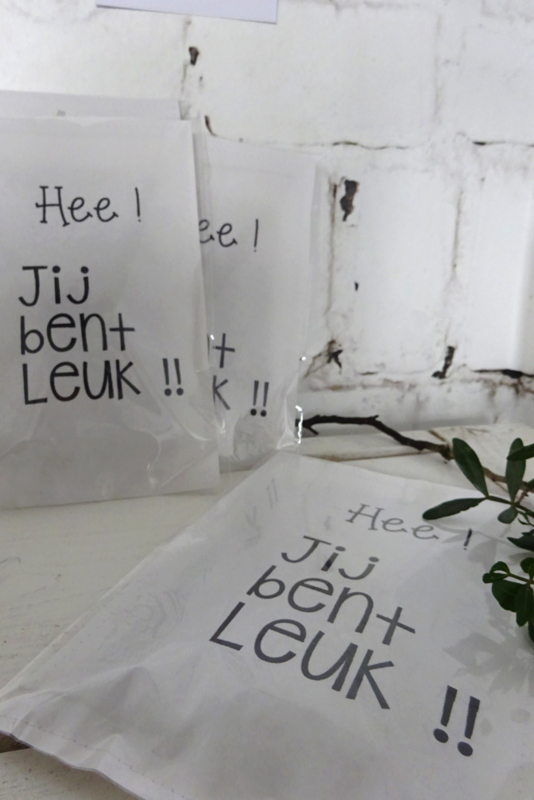 Hee !
Jij
bent
Leuk !!
ee !
t
k !!
Hee !
Jij
bent
Leuk !!